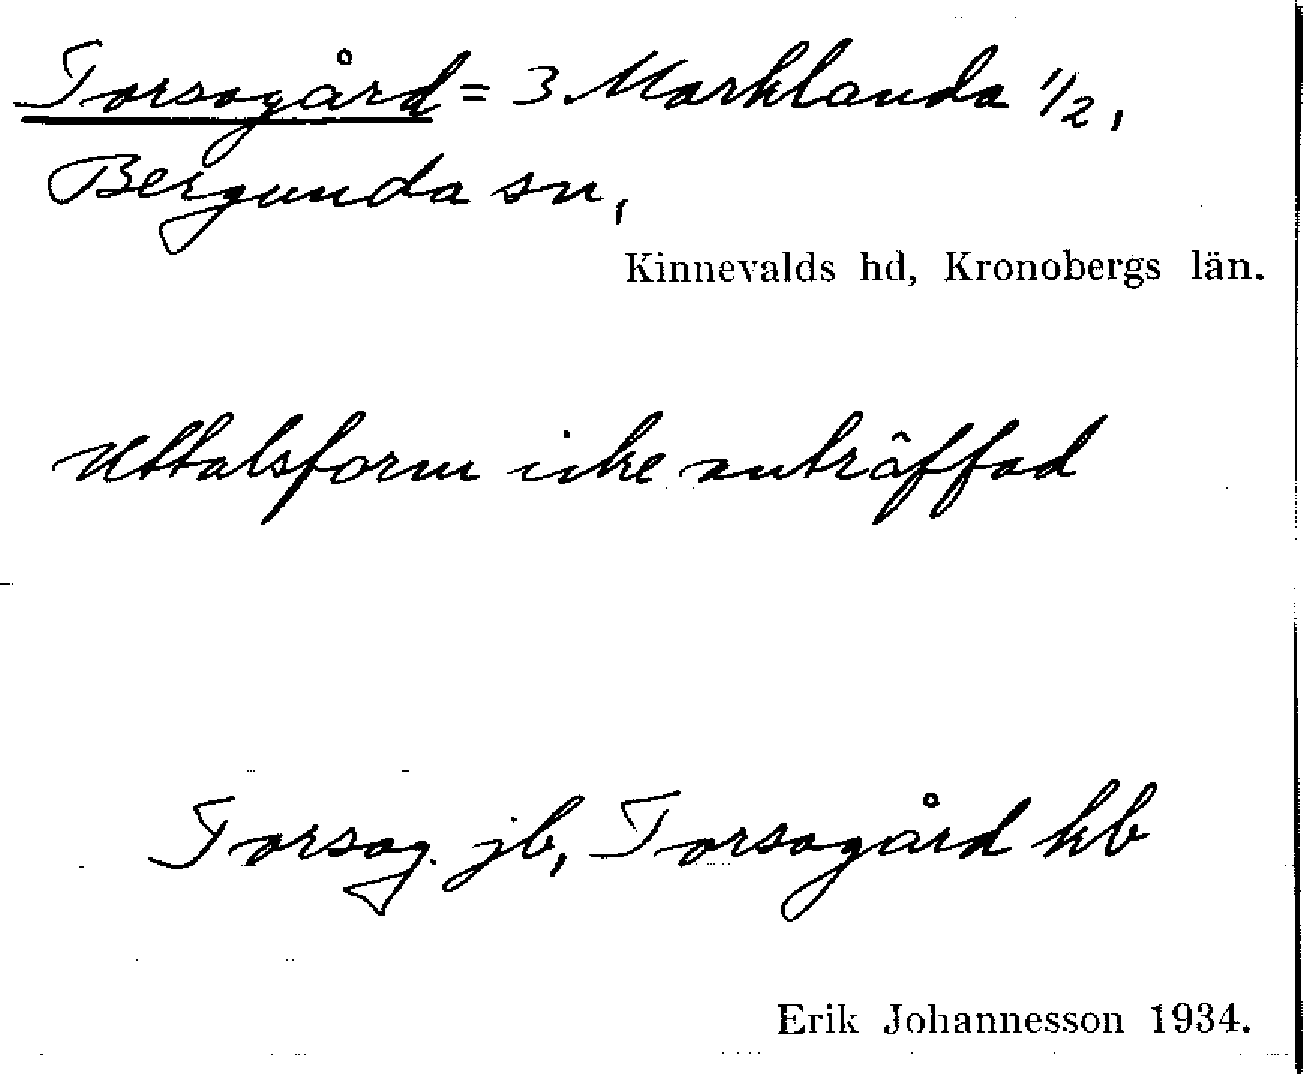 Torsagård = 3 Marklanda 1/2,
Bergunda sn,
Kinnevalds hd, Kronobergs län.
Uttalsform icke anträffad
Torsag. jb, Torsagård kb
Erik Johannesson 1934.